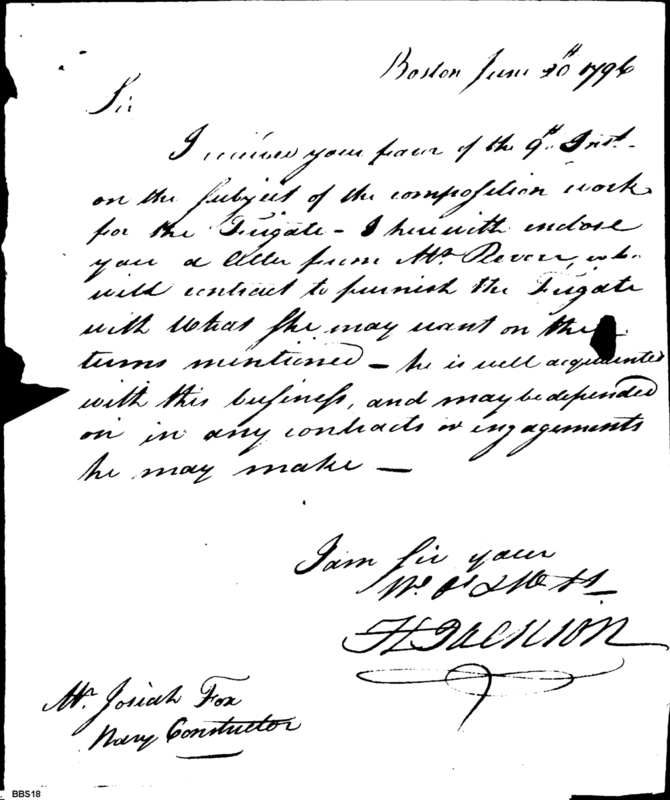 Boston June 30th 1796
Sir
I received your favor of the 9th Inst.
on the subject of the composition work
for the Frigate - I herewith inclose
you a letter from Mr. Revere, who
will contract to furnish the Frigate
with What she may want on the
terms mentioned - he is well acquainted
with this business, and may be depended
on in any contracts or engagements
he may make -
I am Sir your
Mo. Ob.
H Jackson
Mr. Josiah Fox
Navy Constructor
BBS18